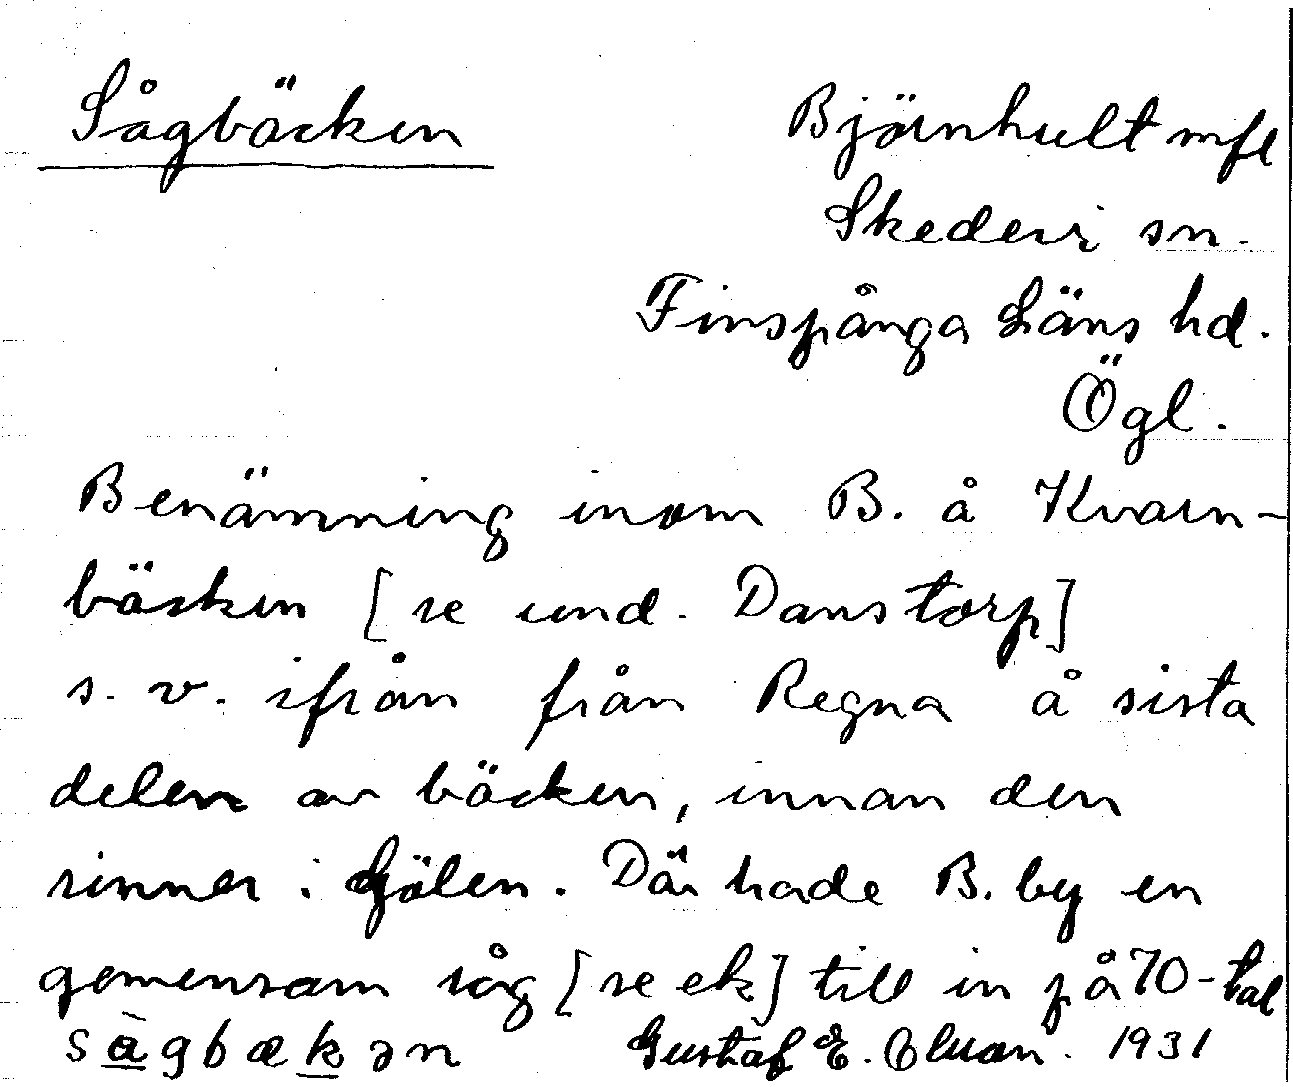 Sågbäcken
Björnhult mfl
Skedevi sn.
Finspånga Läns hd.
Ögl.
Benämning inom B. å Kvarn-
bäcken [se und. Danstorp]
s. v. ifrån från Regna å sista
delen av bäcken, innan den
rinner i Gölen. Där hade B. by en
gemensam såg [se ek] till in på 70-tal
sågbækən Gustaf E. 1931